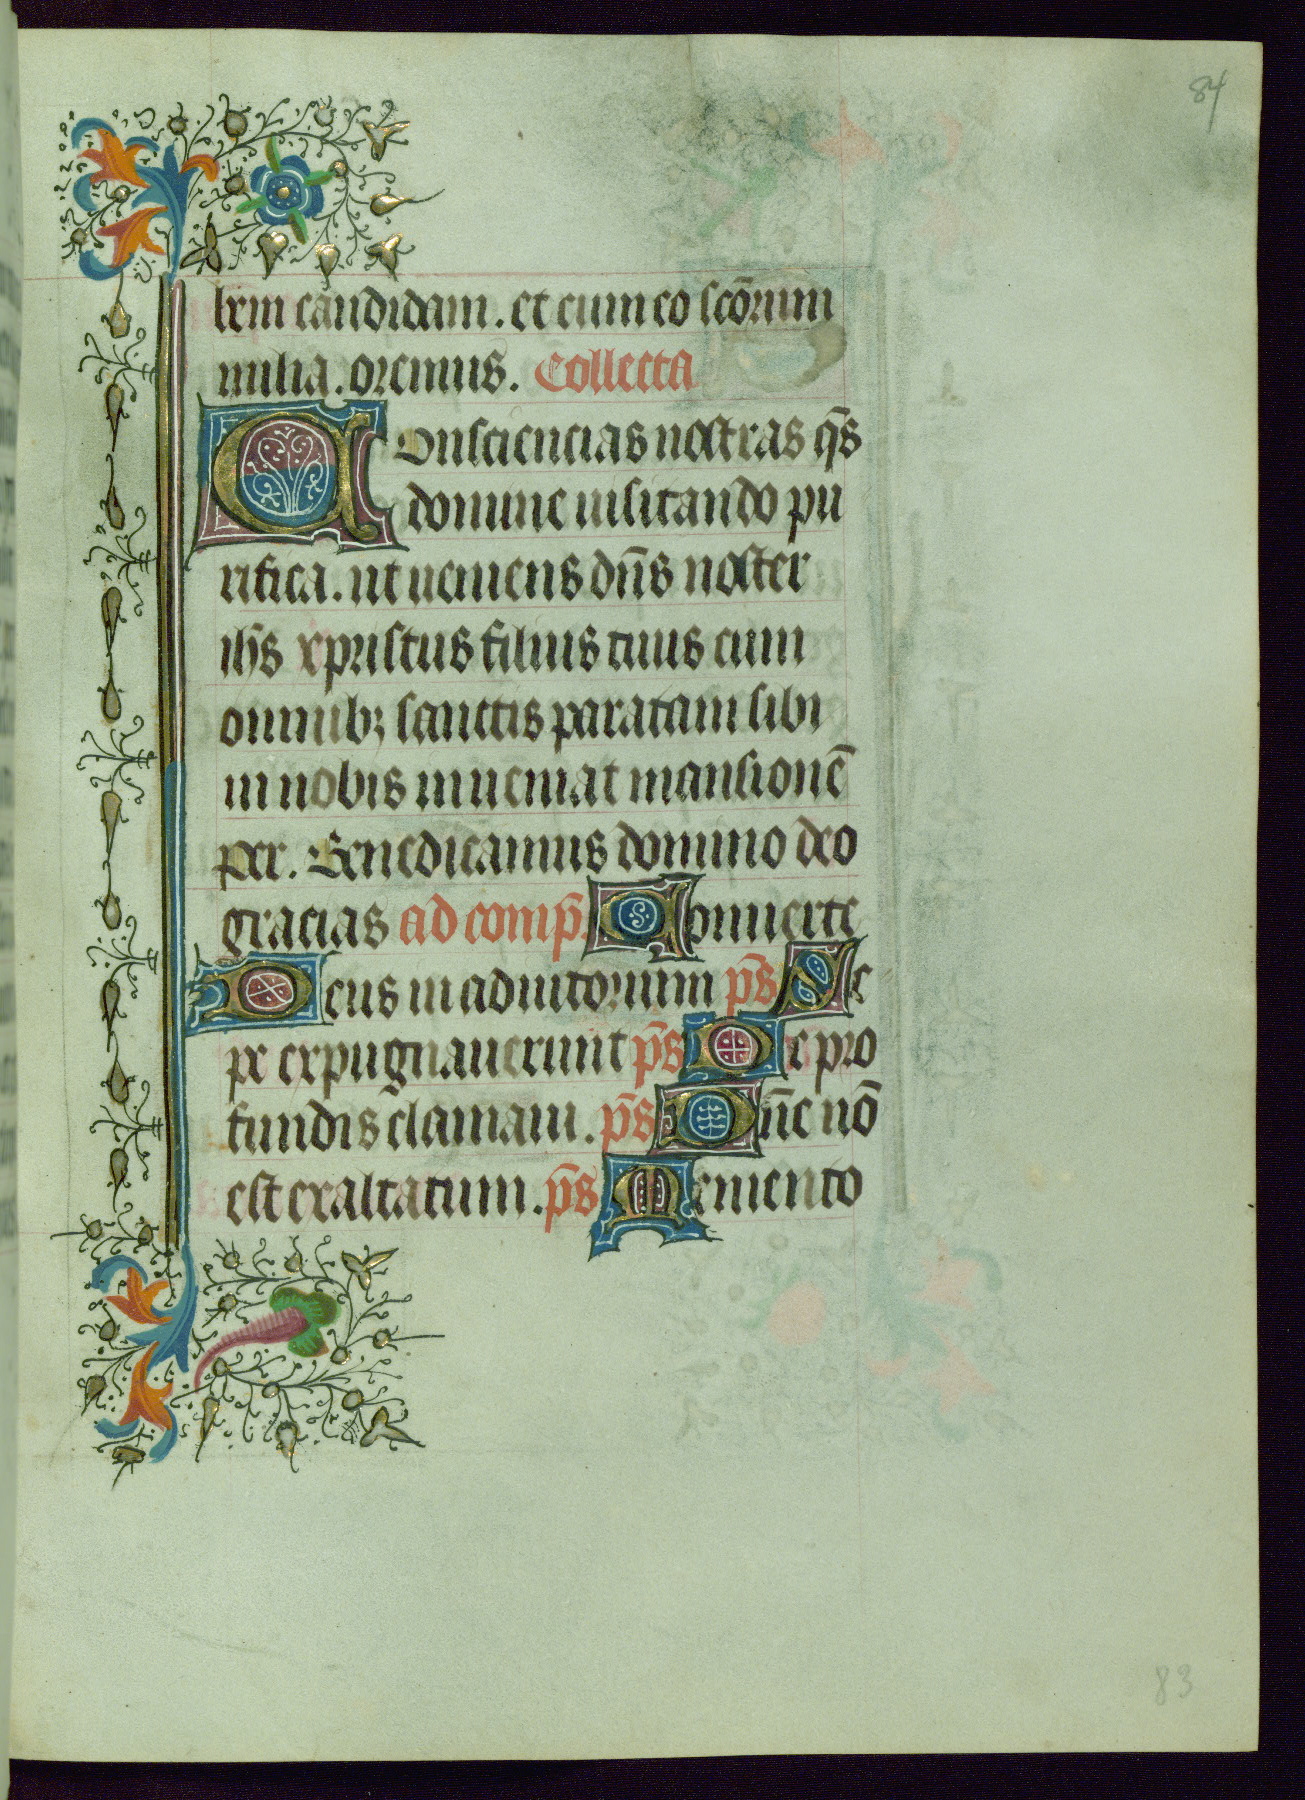 84
bem candidam. et cum eo scōrum
milia. oremus. Collecta
Consciencias nostras q̄s
domine uisitando pu
rifica. ut ueniens dn̄s noster
ih̄s xpristus filius tuus cum
omnibꝫ sanctis paratam sibi
in nobis inueniat mansionē
per. Benedicamus domino deo
gracias ad comp̄. Conuerte
Deus in adiutorium p̄s Se
pe expugnauerunt p̄s De pro
fundis clamaui. p̄s Dn̄e nō
est exaltatum. p̄s Memento
83